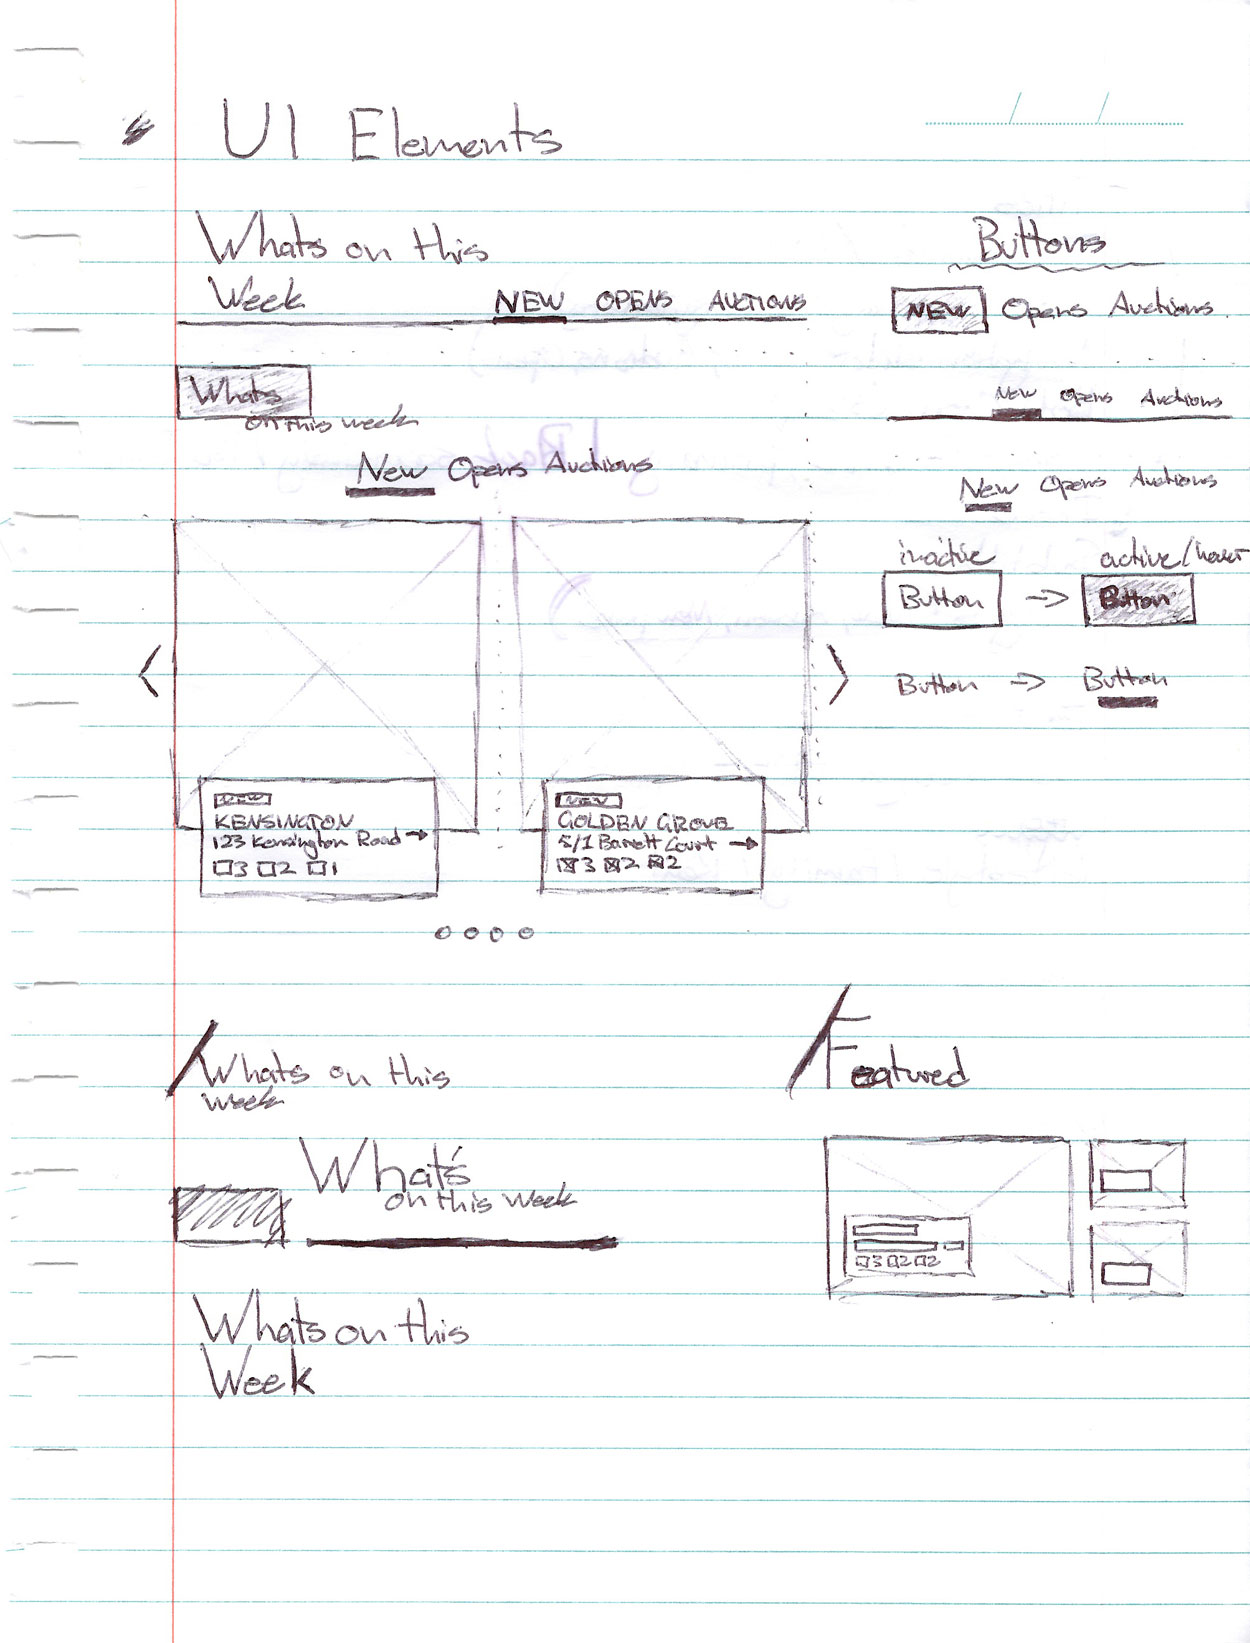 UI Elements
Whats on this
Week
NEW OPENS AUCTIONS
Whats
on this week
New Opens Auctions
NEW
KENSINGTON
123 Kensington Road →
3 2 1
NEW
GOLDEN GROVE
5/1 Barrett Court →
3 2 2
Buttons
NEW Opens Auctions
New Opens Auctions
New Opens Auctions
inactive active/hover
Button → Button
Button → Button
Whats on this
week
What's
on this week
Whats on this
Week
Featured
3 2 2